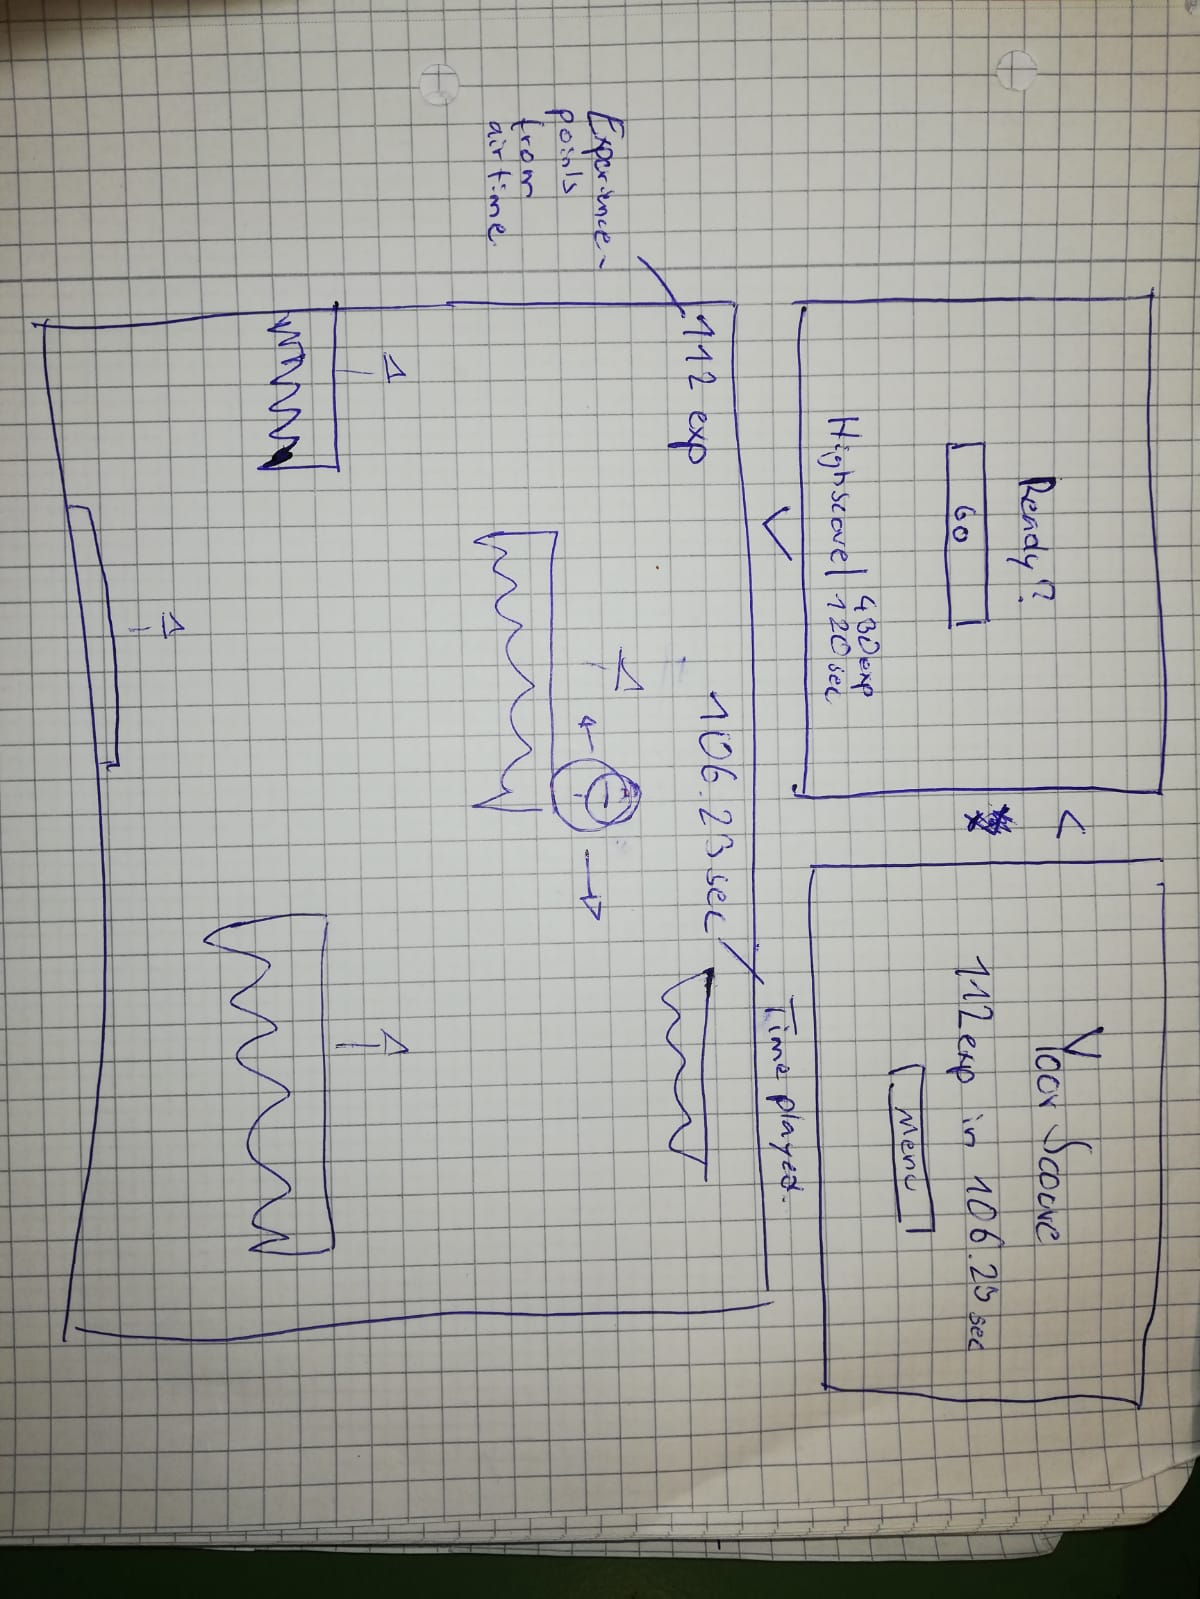 Ready?
GO
Highscore| 430exp
120sec
Your Score
112exp in 106.23 sec
Menu
Experience-
points
from
airtime
112 exp
106.23 sec
Time played.